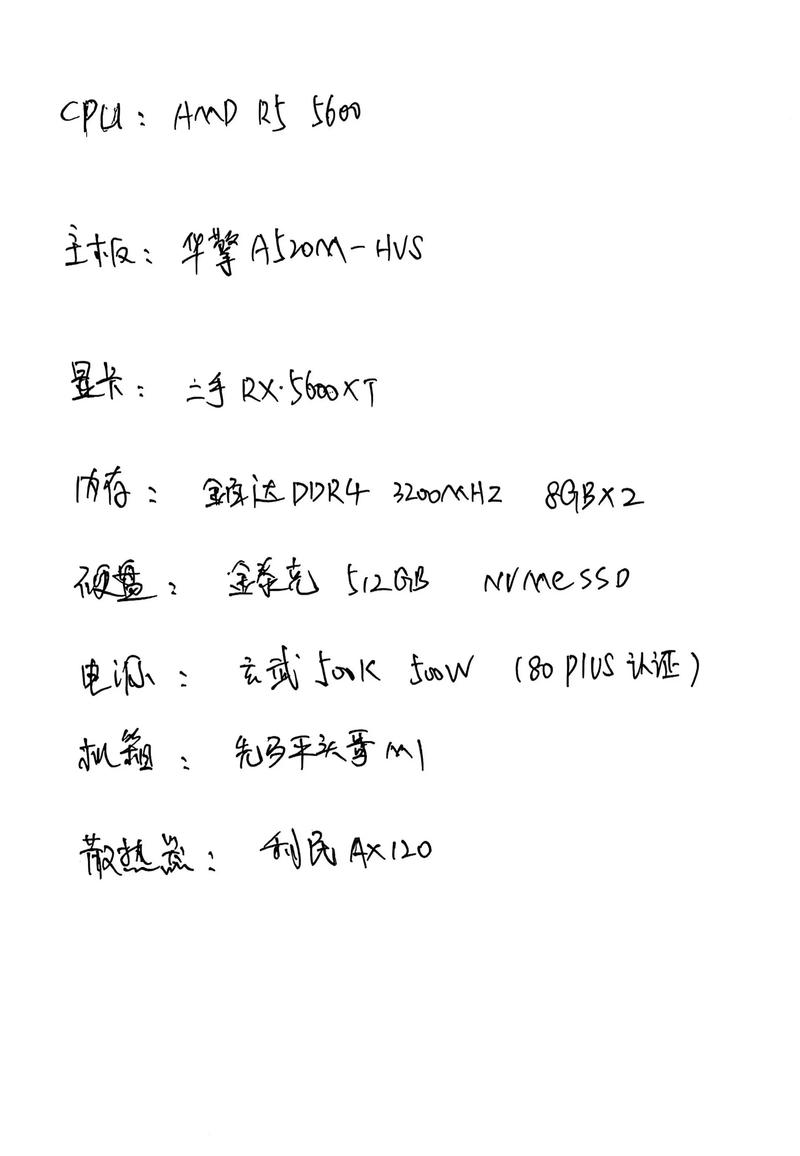 CPU: AMD R5 5600
主板: 华擎 A520M-HVS
显卡: 二手 RX·5600XT
内存: 金库达 DDR4 3200MHZ 8GB×2
硬盘: 金泰克 512GB NVMe SSD
电源: 玄武 500K 500W (80 PLUS 认证)
机箱: 先马平头哥 M1
散热器: 利民 AX120